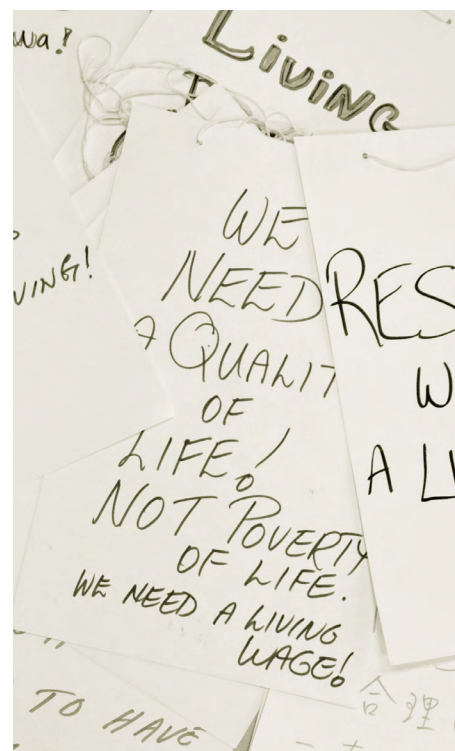 Living
WE
NEED
A QUALIT
OF
LIFE!
NOT POVERTY
OF LIFE.
WE NEED A LIVING
WAGE!
VING!
RES
W
A LI
TO HAVE
合理